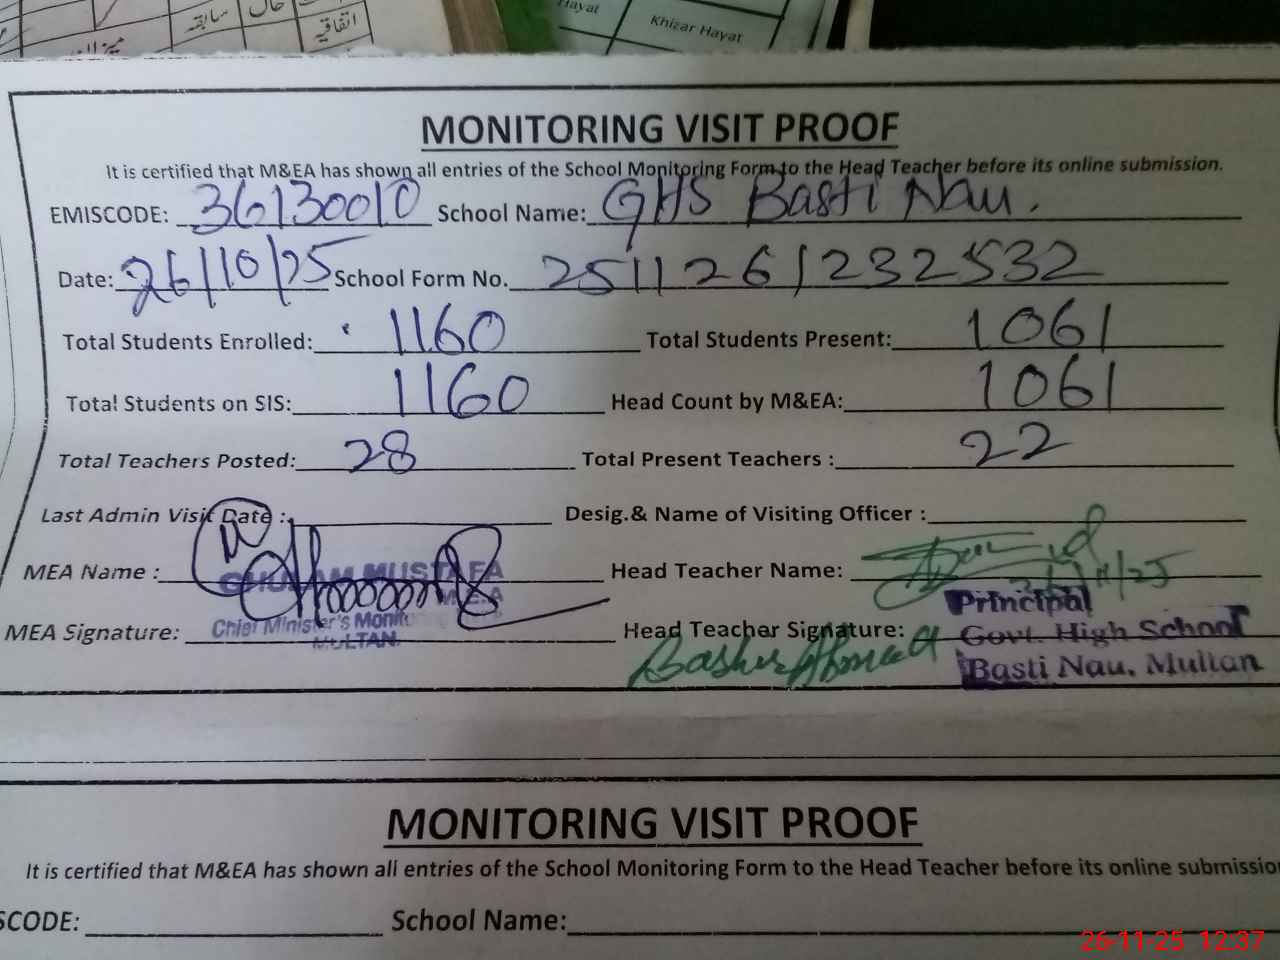 حال سابقہ
اتفاقیہ
Hayat
Khizar Hayat
MONITORING VISIT PROOF
It is certified that M&EA has shown all entries of the School Monitoring Form to the Head Teacher before its online submission.
EMISCODE: 36130010 School Name: GHS Basti Nau.
Date: 26/10/25 School Form No. 251126/232532
Total Students Enrolled: 1160 Total Students Present: 1061
Total Students on SIS: 1160 Head Count by M&EA: 1061
Total Teachers Posted: 28 Total Present Teachers : 22
Last Admin Visit Date : Desig.& Name of Visiting Officer :
MEA Name : GHULAM MUSTAFA Head Teacher Name:
M.E.A
Principal
MEA Signature: Chief Minister's Monit Head Teacher Signature: Govt. High School
MULTAN. Bashir Ahmad Basti Nau. Multan
MONITORING VISIT PROOF
It is certified that M&EA has shown all entries of the School Monitoring Form to the Head Teacher before its online submissio
SCODE: School Name:
26-11-25 12:37